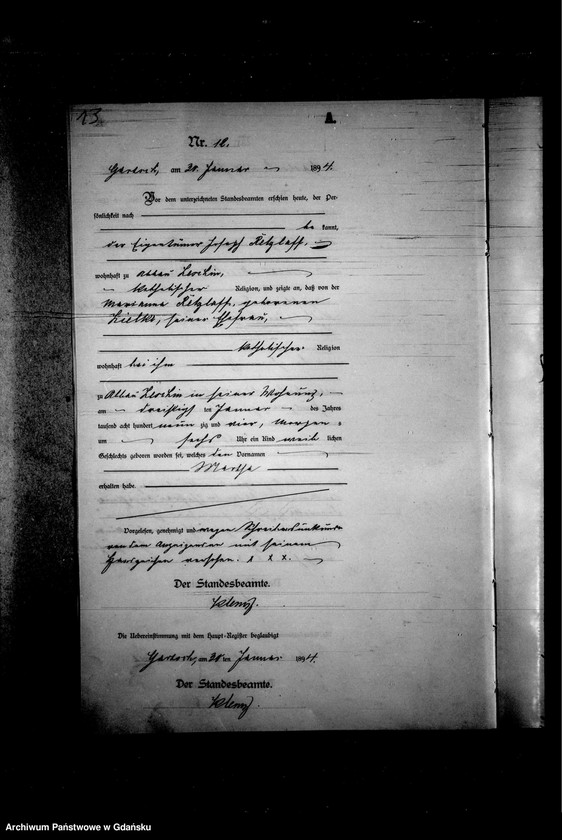 13
A.
Nr. 12.
am 20. Januar 1894.
Vor dem unterzeichneten Standesbeamten erschien heute, der Per-
sönlichkeit nach
be kannt,
der Eigentümer Joseph Retzlaff,
wohnhaft zu Abbau
katholischer Religion, und zeigte an, daß von der
Marianne Retzlaff, geborenen
Zielke, seiner Ehefrau,
katholischer Religion
wohnhaft bei ihm
zu Abbau in seiner Wohnung,
am ten Januar des Jahres
tausend acht hundert neun zig und vier, Morgens
um sechs Uhr ein Kind weib lichen
Geschlechts geboren worden sei, welches den Vornamen
Martha
erhalten habe.
Vorgelesen, genehmigt und wegen Schreibensunkunde
von dem Anzeigenden mit seinem
Handzeichen versehen. x x x.
Der Standesbeamte.
Die Uebereinstimmung mit dem Haupt-Register beglaubigt
am 20 ten Januar 1894.
Der Standesbeamte.
Archiwum Państwowe w Gdańsku